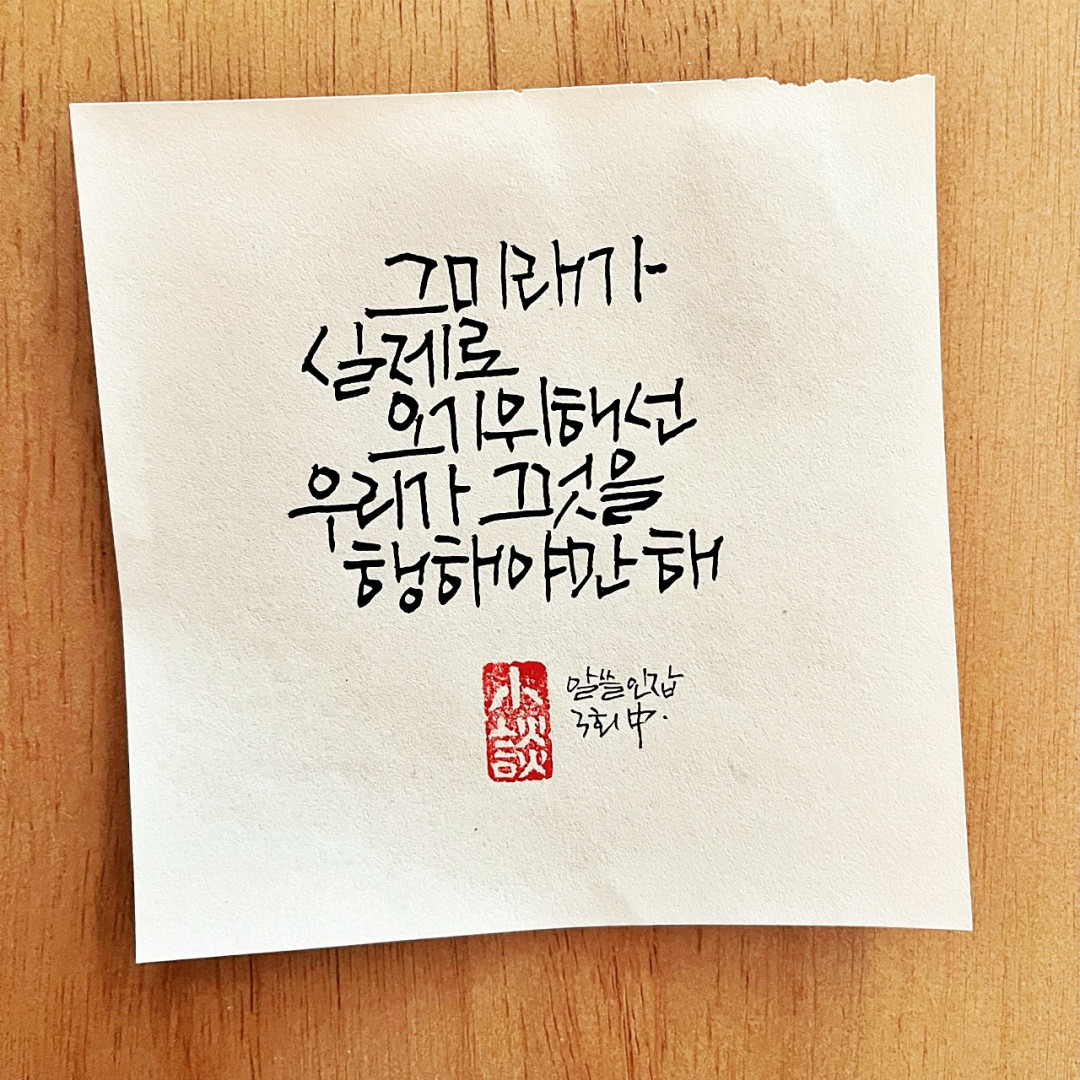 그미래가
실제로
오기위해선
우리가 그것을
행해야만 해
小談
알쓸인잡
3회 中.